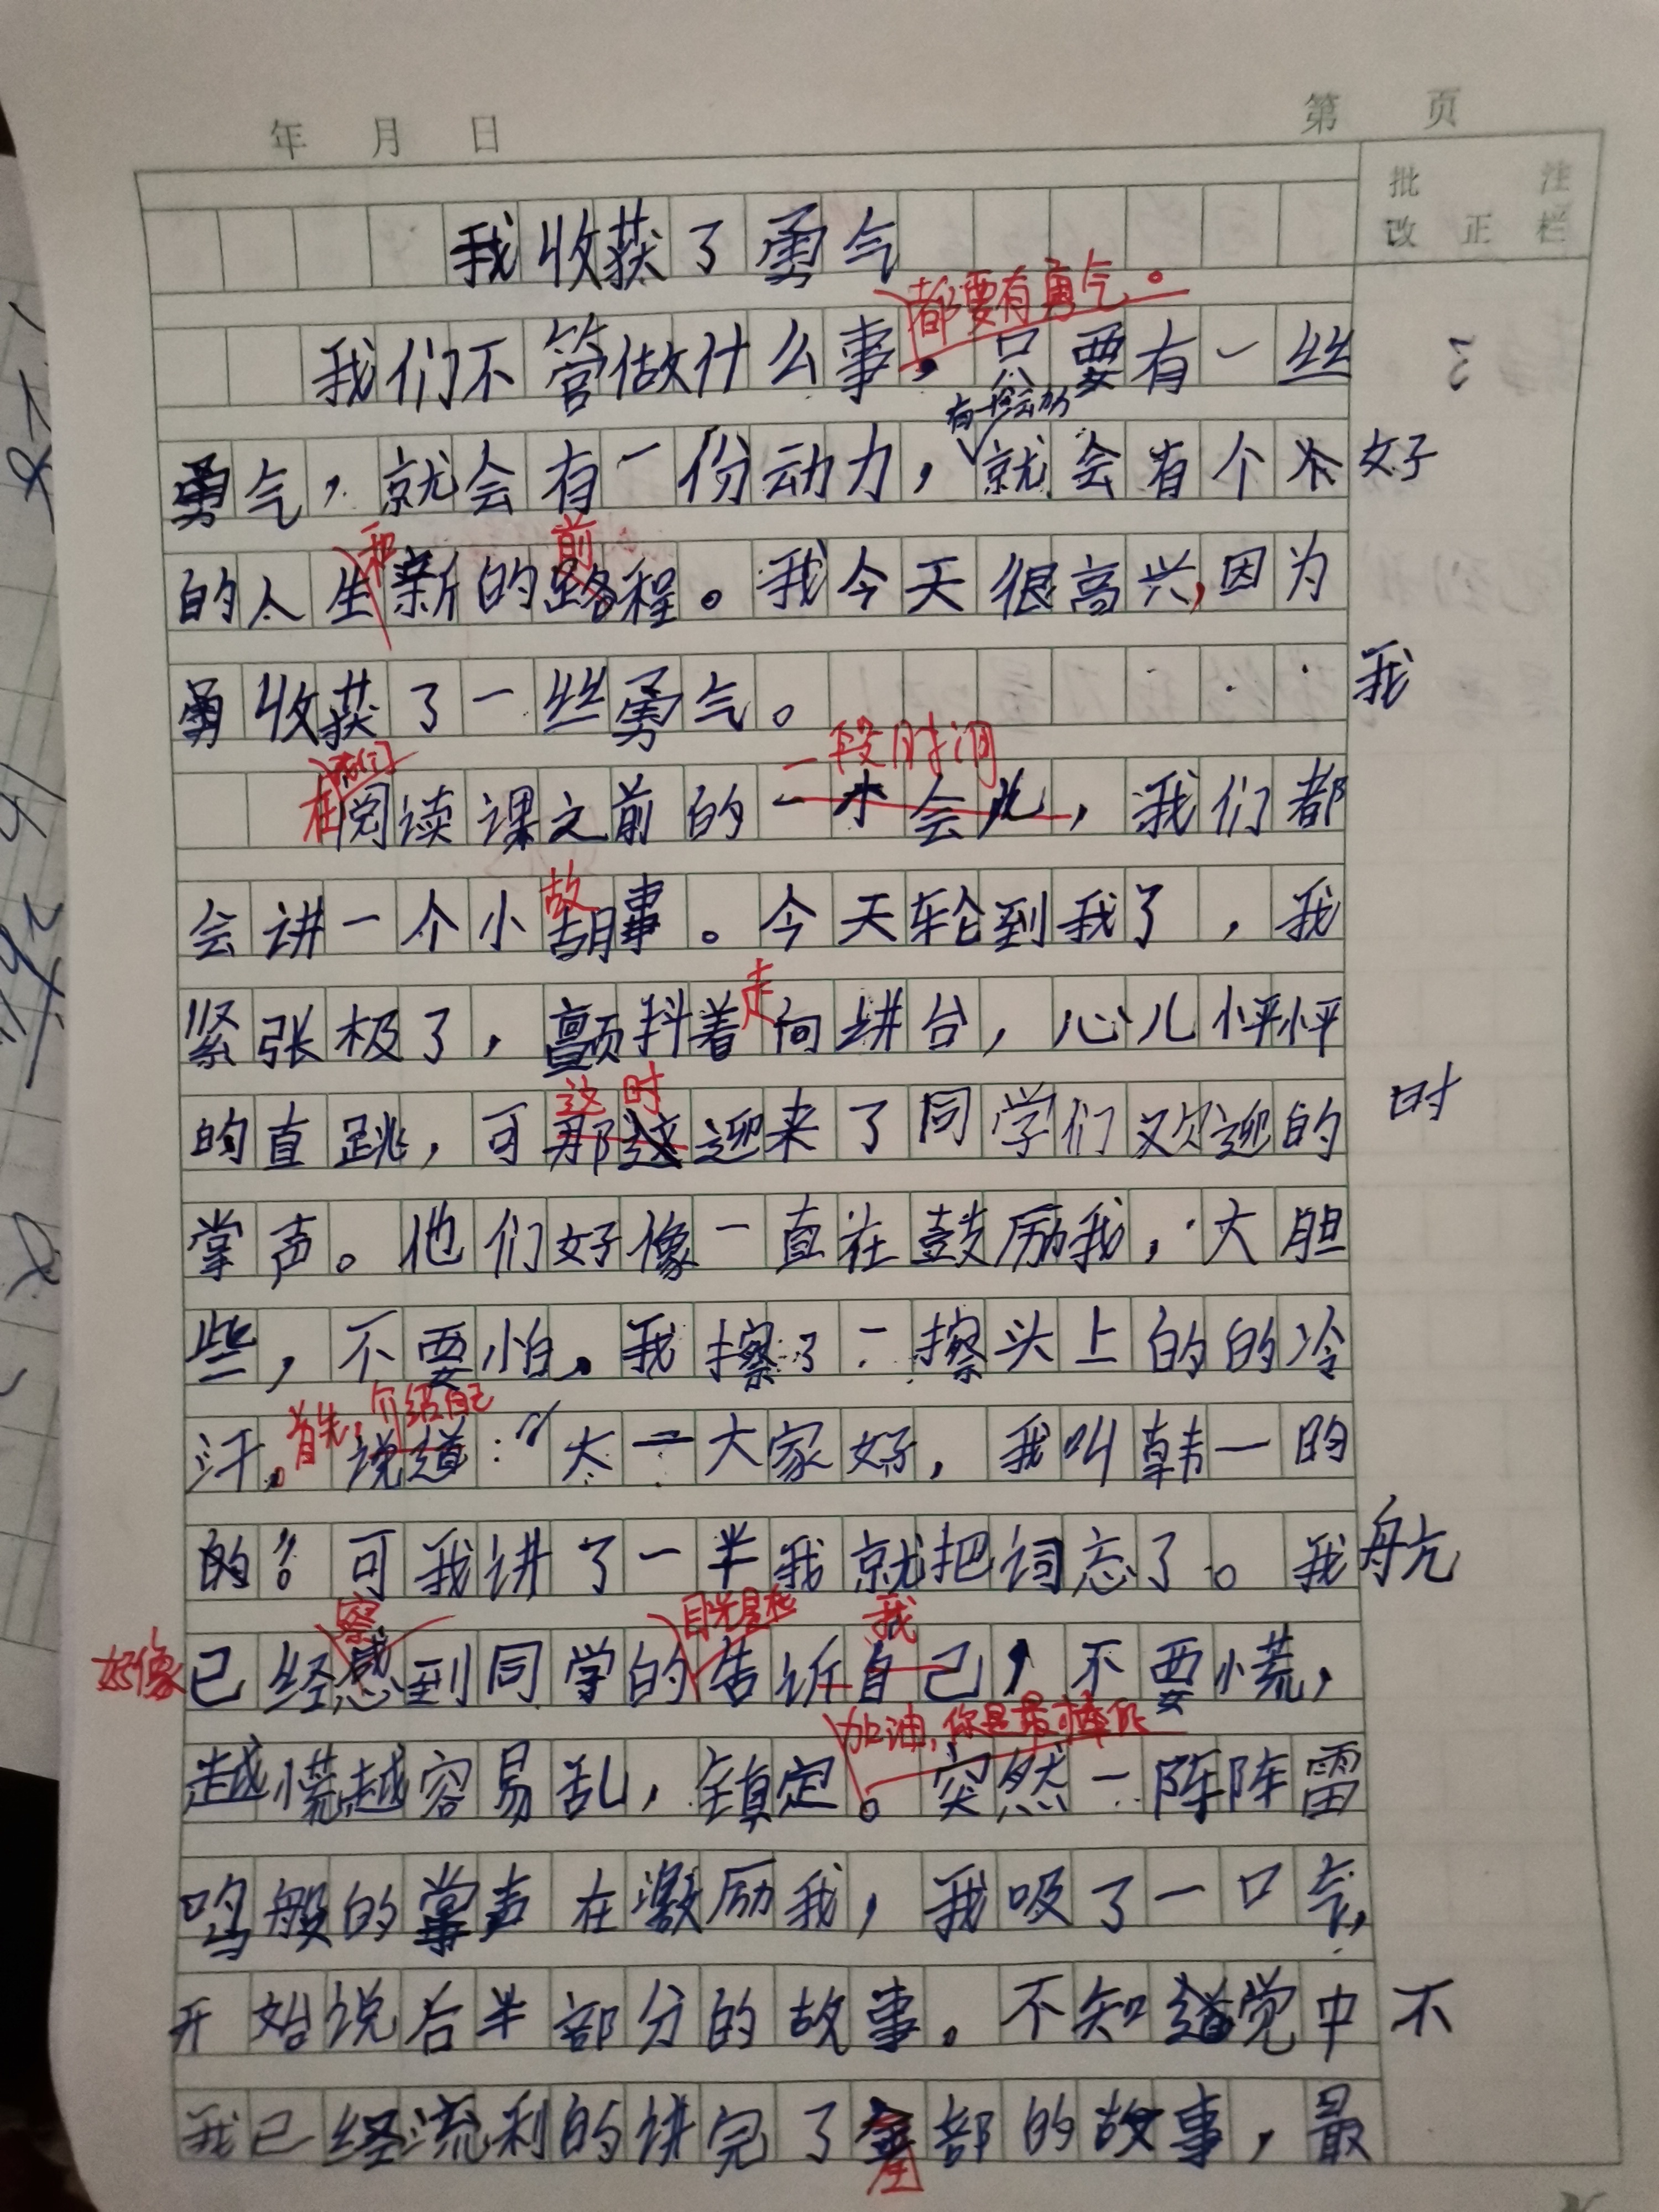 年 月 日 第 页
批 注
改 正 栏
我收获了勇气
都要有勇气。
我们不管做什么事，只要有一丝
有一份动力
勇气，就会有一份动力，就会有个 好
和 前
的人生新的路程。我今天很高兴，因为
勇收获了一丝勇气。 我
我们 一段时间
在阅读课之前的一小会儿，我们都
故
会讲一个小胡事。今天轮到我了，我
走
紧张极了，颤抖着向讲台，心儿怦怦
这时
的直跳，可那 迎来了同学们欢迎的 时
掌声。他们好像一直在鼓励我，大胆
些，不要怕。我擦了一擦头上的的冷
首先，介绍自己
汗。说道：“大一大家好，我叫韩一昀
的”。可我讲了一半我就把词忘了。我 航
察 目光是在 我
好像已经感到同学的告诉自己，不要慌，
加油，你是最棒的
越慌越容易乱，镇定。突然一阵阵雷
鸣般的掌声在激励我，我吸了一口气，
开始说后半部分的故事。不知道觉中 不
我已经流利的讲完了全部的故事，最
全